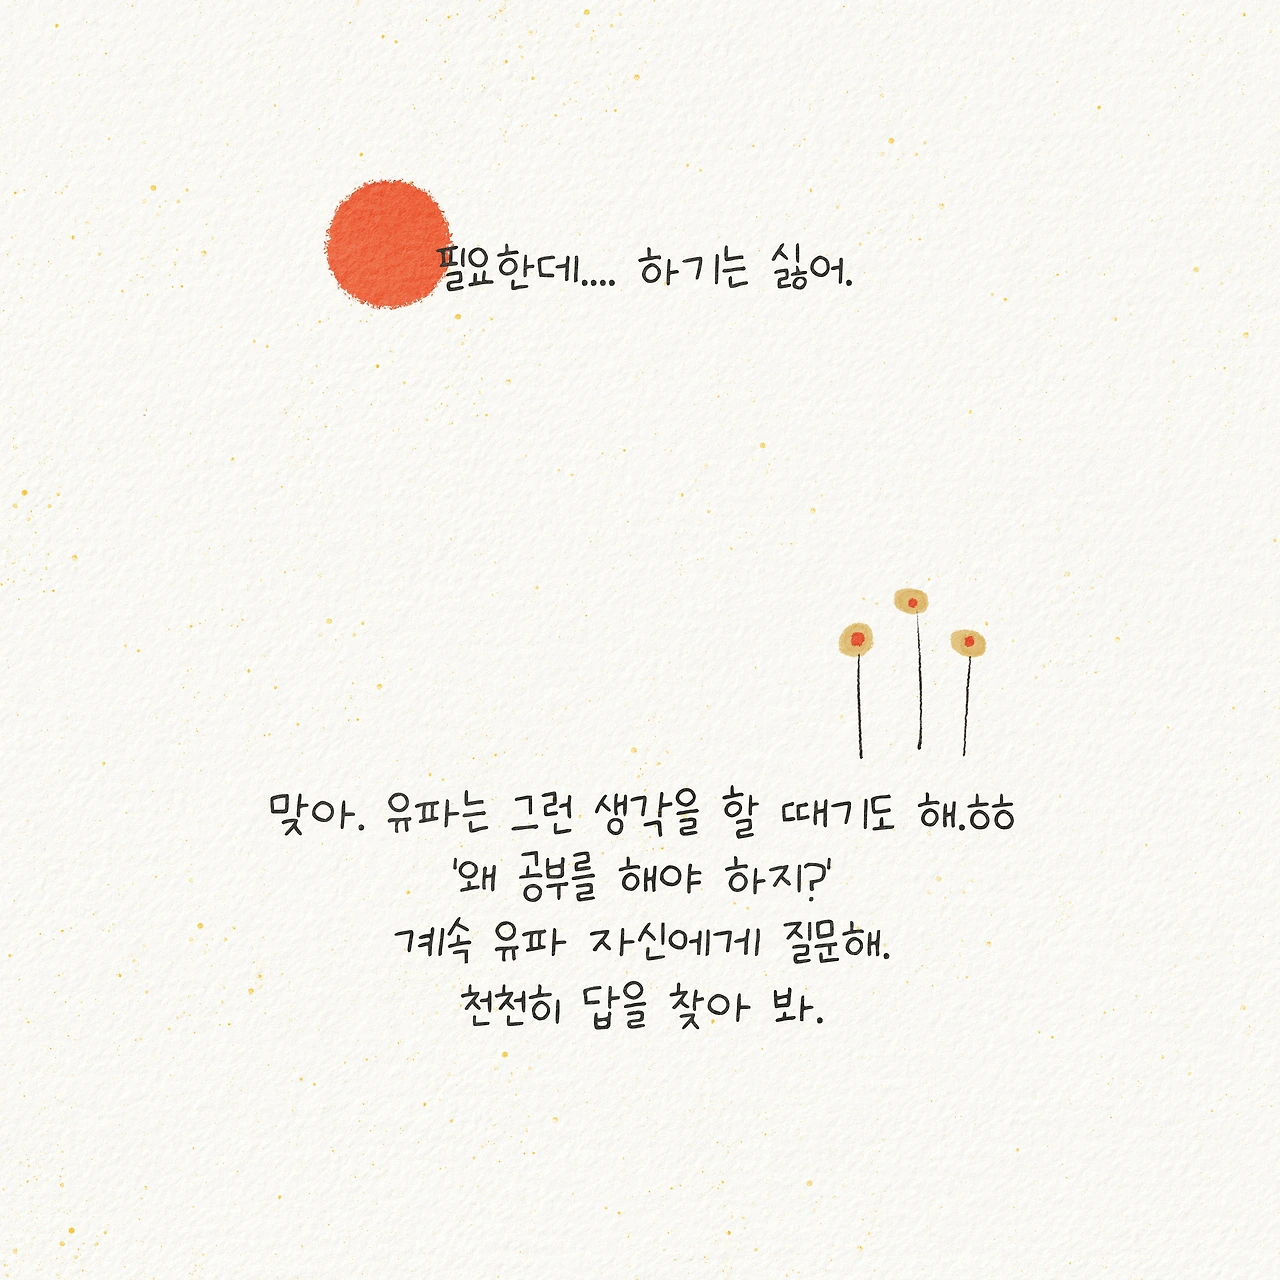 필요한데.... 하기는 싫어.
맞아. 유파는 그런 생각을 할 때기도 해.ㅎㅎ
'왜 공부를 해야 하지?'
계속 유파 자신에게 질문해.
천천히 답을 찾아 봐.